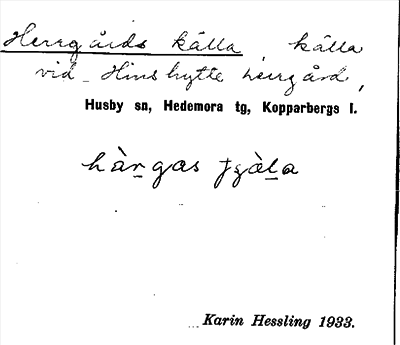 Herrgårds källa, källa
vid Hinshytte herrgård,
Husby sn, Hedemora tg, Kopparbergs l.
hàrgas tjàla
Karin Hessling 1933.